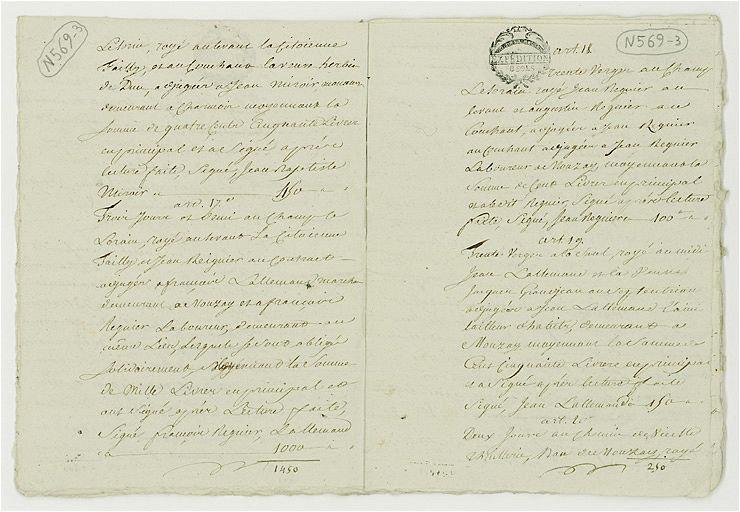 N569-3
Lelorin, royé au levant la Citoienne
Failly, et au Couchant la veuve herbin
de Dun, adjugée a Jean Miroir
demeurant a Charmoir moyennant la
somme de quatre Cents Cinquante Livres
en principal et a Signé après
lecture faite, Signé, Jean Baptiste
Miroir 450
art. 17.
Trois Jours et Demi au Champ le
Lorain, royé au levant La Citoienne
Failly et Jean Reignier au Couchant
adjugée a françois Lallemand march
demeurant a Mouzay et a françois
Regnier Laboureur, demeurant au
même Lieu, Lesquels se sont obligé
solidairement, Moyennant la somme
de Mille Livres en principal et
ont Signé après Lecture faite,
Signé françois Regnier, Lallemand
1000
1450
N569-3
EXPÉDITION
art. 18
trente Verges au Champ
Lelorain royé Jean Regnier au
levant et augustin Regnier au
Couchant, adjugée a Jean Regnier
au Couchant adjugée a Jean Regnier
Laboureur a Mouzay, moyennant la
Somme de Cent Livres en principal
et a led. Regnier, Signé après lecture
faite, Signé, Jean Regniere 100
art. 19.
Trente Verges a la Saul, royé au midi
Jean Lallemand et la Veuve
Jacques Grandjean au Septentrion
adjugée a Jean Lallemand l'ainé
tailleur d'habits, demeurant a
Mouzay moyennant la Somme de
Cent Cinquante Livres en principal
et a Signé après lecture faite
Signé, Jean Lallemand 150
art. 20.
Deux Jours au Chemin de Vieille
Ban de Mouzay, royé
250